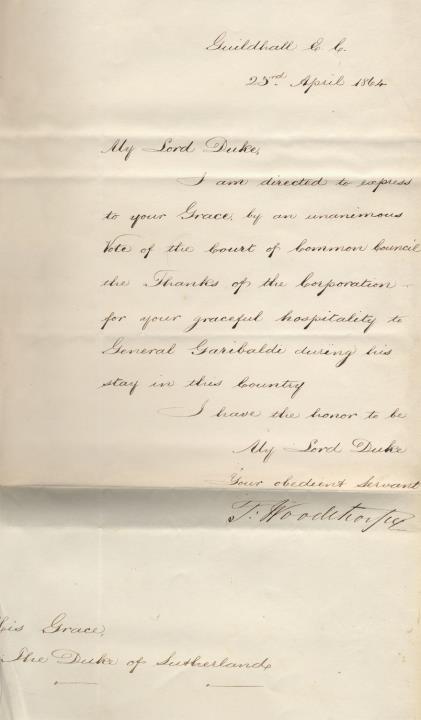 Guildhall E. C.
23rd. April 1864
My Lord Duke,
I am directed to express
to your Grace, by an unanimous
Vote of the Court of Common Council
the Thanks of the Corporation
for your graceful hospitality to
General Garibaldi during his
stay in this Country
I have the honor to be
My Lord Duke
Your obedient Servant
F. Woodthorpe
His Grace,
The Duke of Sutherland